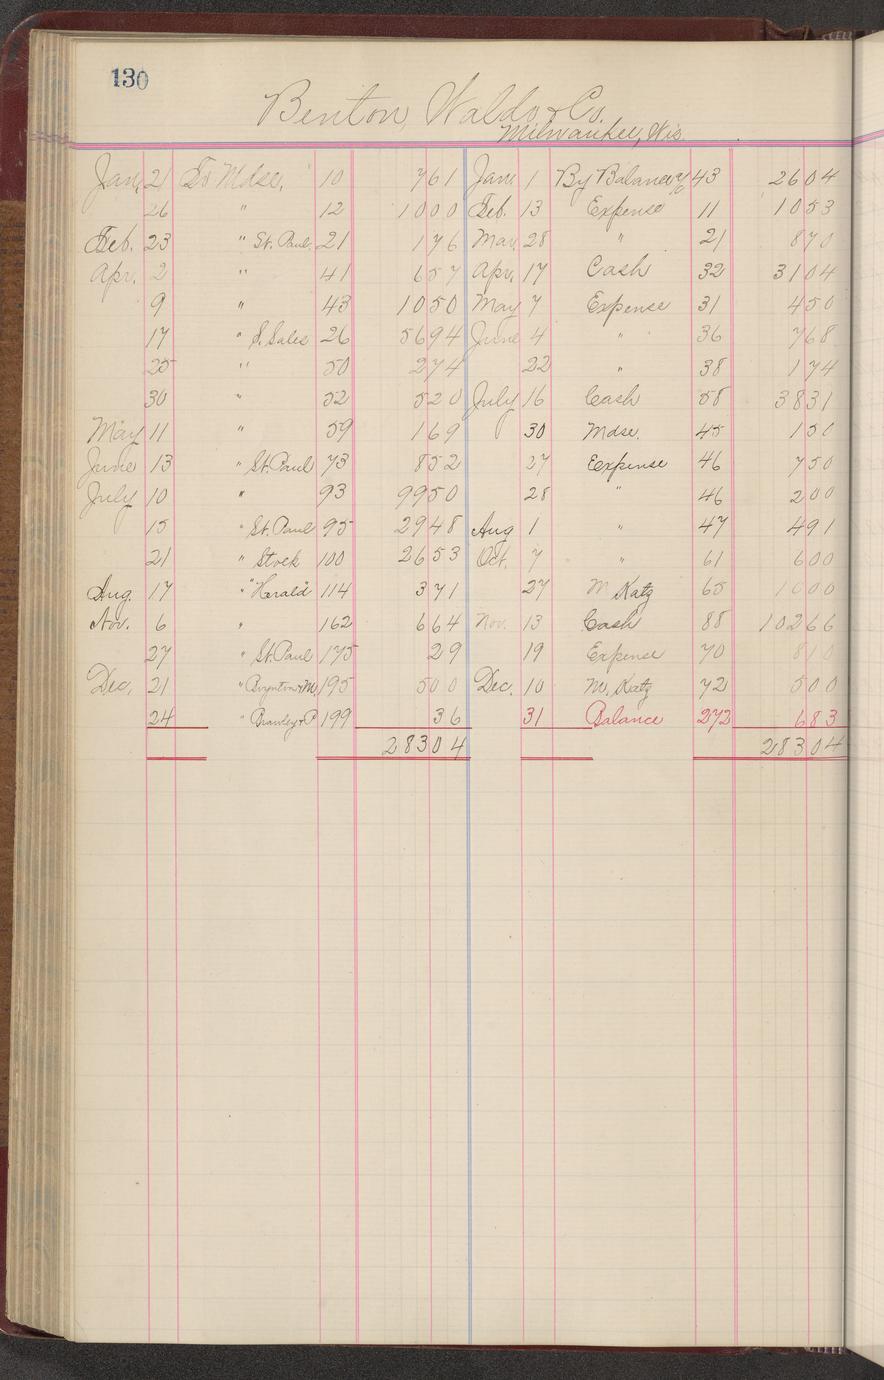 130
Benton, Waldo & Co.
Milwaukee, Wis.
Jan. 21 To Mdse. 10 761 Jan. 1 By Balance 43 2604
26 " 12 1000 Feb. 13 Expense 11 1053
Feb. 23 " St. Paul. 21 176 Mar. 28 " 21 870
Apr. 2 " 41 657 Apr. 17 Cash 32 3104
9 " 43 1050 May 7 Expense 31 450
17 " S. Sales 26 5694 June 4 " 36 768
25 " 50 274 22 " 38 174
30 " 52 520 July 16 Cash 58 3831
May 11 " 59 169 30 Mdse. 45 150
June 13 " St. Paul 73 852 27 Expense 46 750
July 10 " 93 9950 28 " 46 200
15 " St. Paul 95 2948 Aug 1 " 47 491
21 " Stock 100 2653 Oct. 7 " 61 600
Aug. 17 " "Herald" 114 371 27 M Katz 65 1000
Nov. 6 " 162 664 Nov. 13 Cash 88 10266
27 " St. Paul 175 29 19 Expense 70 810
Dec. 21 " Boynton & M 195 500 Dec. 10 M. Katz 72 500
24 " Brawley & P 199 36 31 Balance 272 683
28304 28304